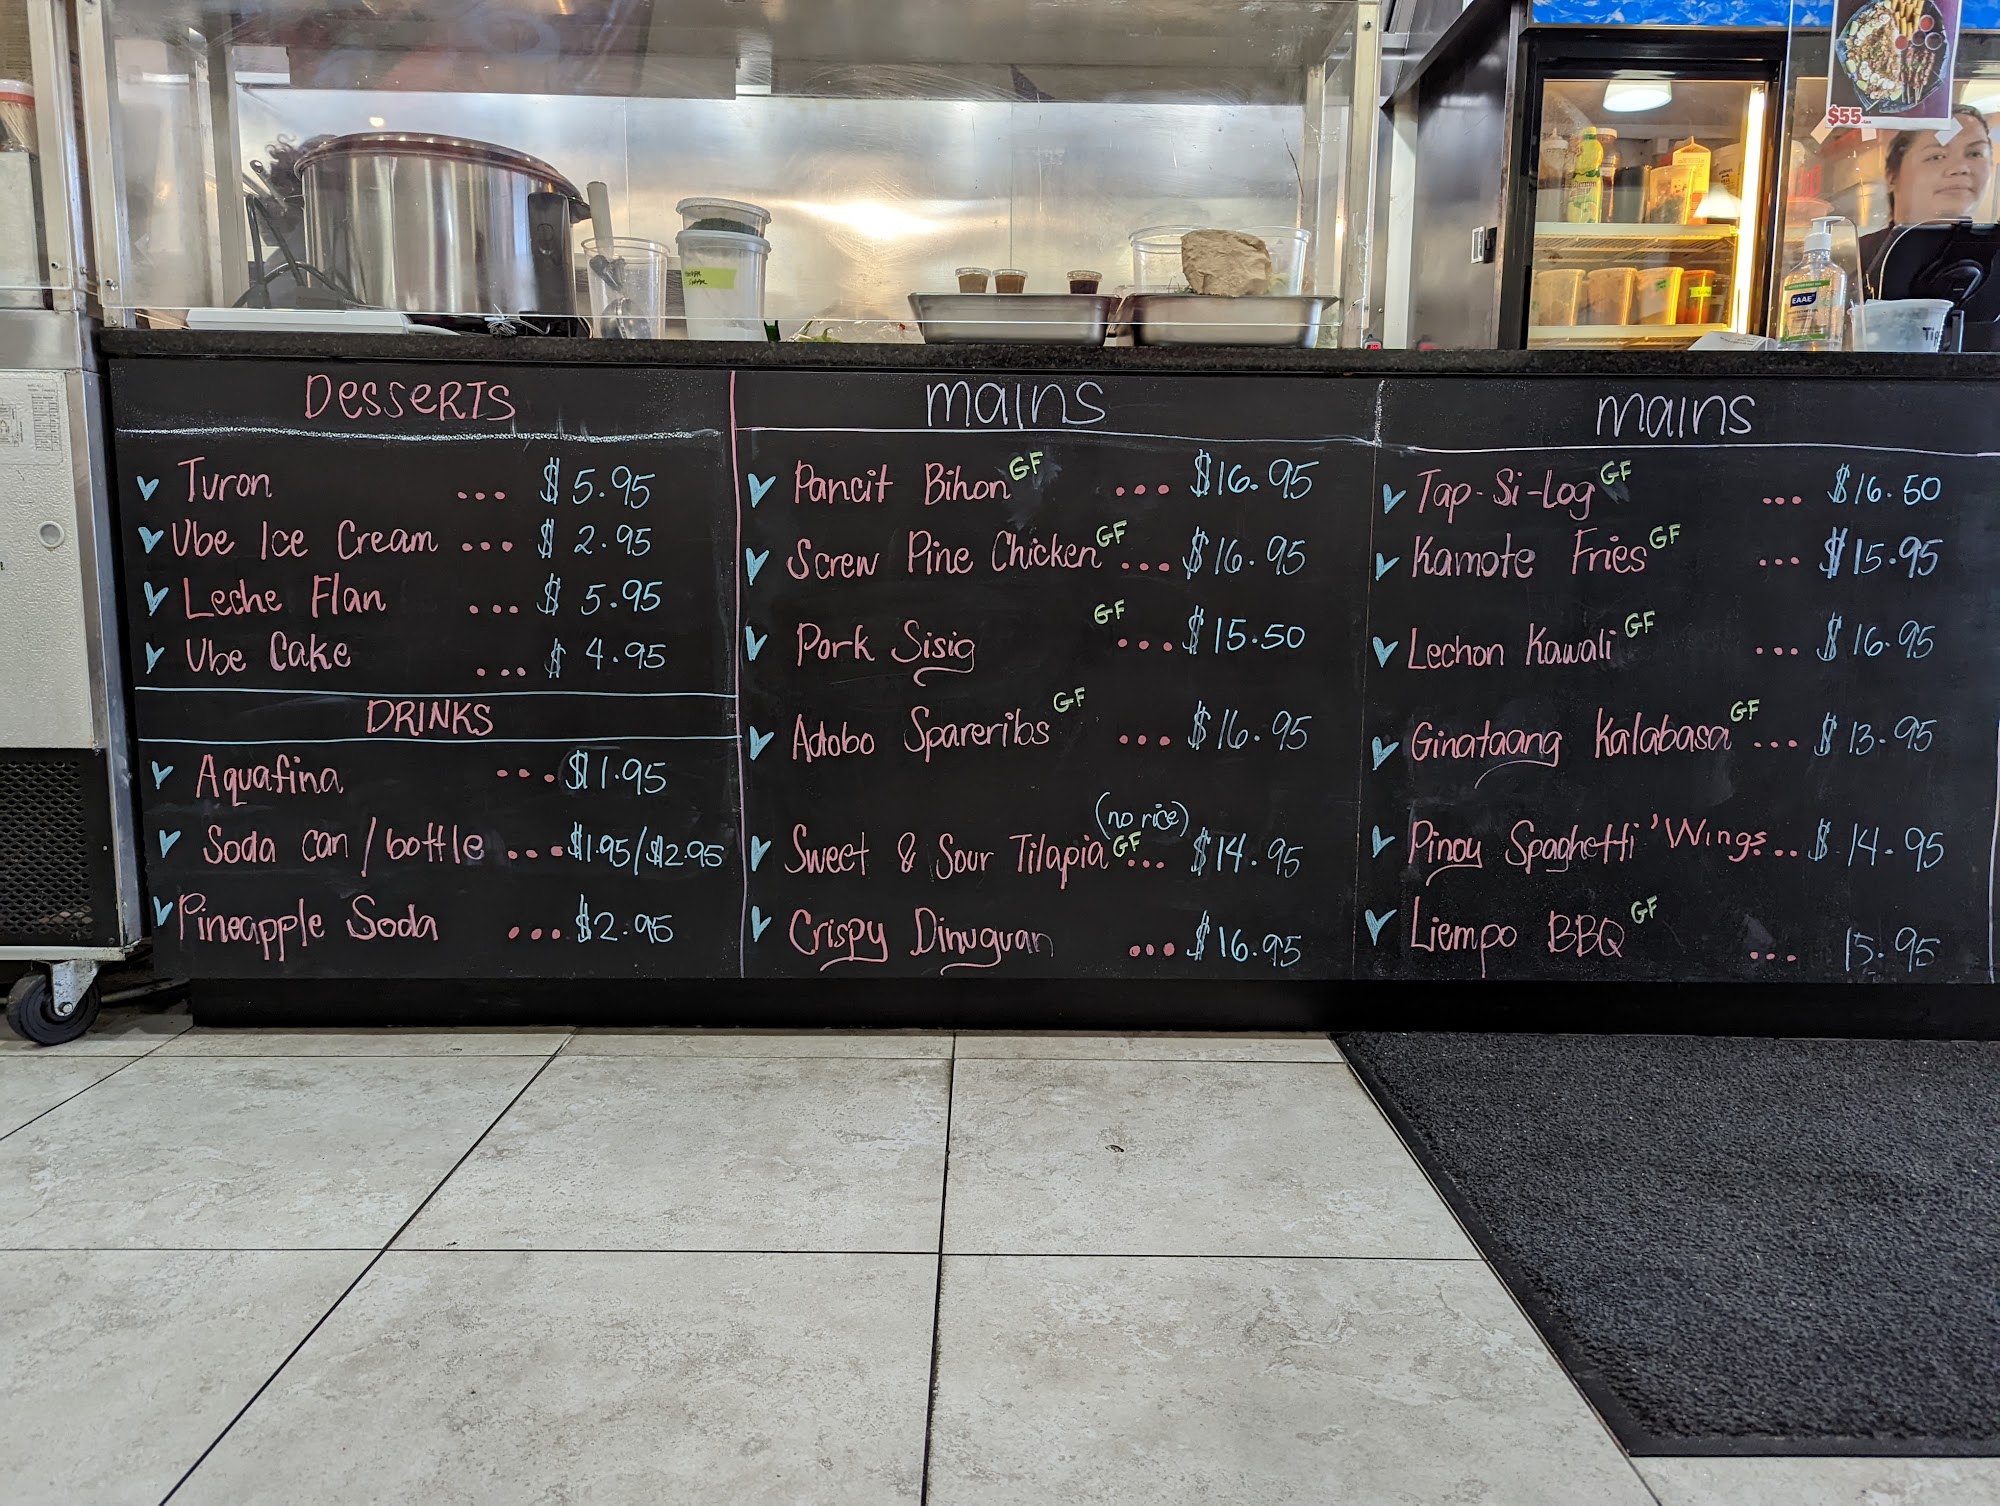 $55
EAAE
DESSERTS
Turon ... $5.95
Ube Ice Cream ... $2.95
Leche Flan ... $5.95
Ube Cake ... $4.95
DRINKS
Aquafina ... $1.95
Soda can/bottle ... $1.95/$2.95
Pineapple Soda ... $2.95
mains
Pancit Bihon GF ... $16.95
Screw Pine Chicken GF ... $16.95
Pork Sisig GF ... $15.50
Adobo Spareribs GF ... $16.95
(no rice)
Sweet & Sour Tilapia GF ... $14.95
Crispy Dinuguan ... $16.95
mains
Tap-Si-Log GF ... $16.50
Kamote Fries GF ... $15.95
Lechon Kawali GF ... $16.95
Ginataang Kalabasa GF ... $13.95
Pinoy Spaghetti 'Wings .. $14.95
Liempo BBQ GF ... 15.95